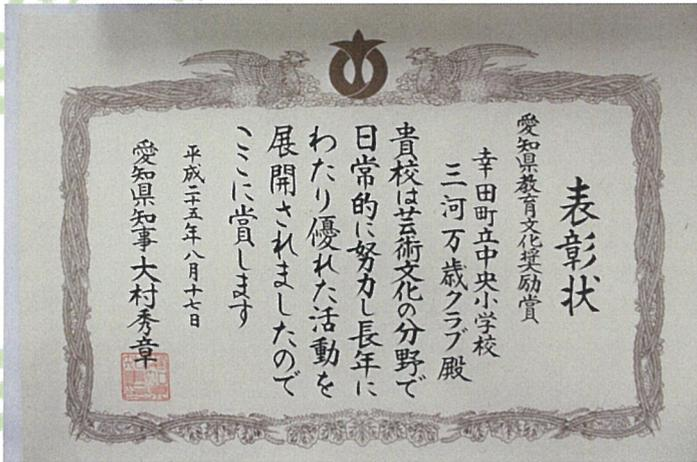 表彰状
愛知県教育文化奨励賞
幸田町立中央小学校
三河万歳クラブ殿
貴校は芸術文化の分野で
日常的に努力し長年に
わたり優れた活動を
展開されましたので
ここに賞します
平成二十五年八月十七日
愛知県知事 大村秀章